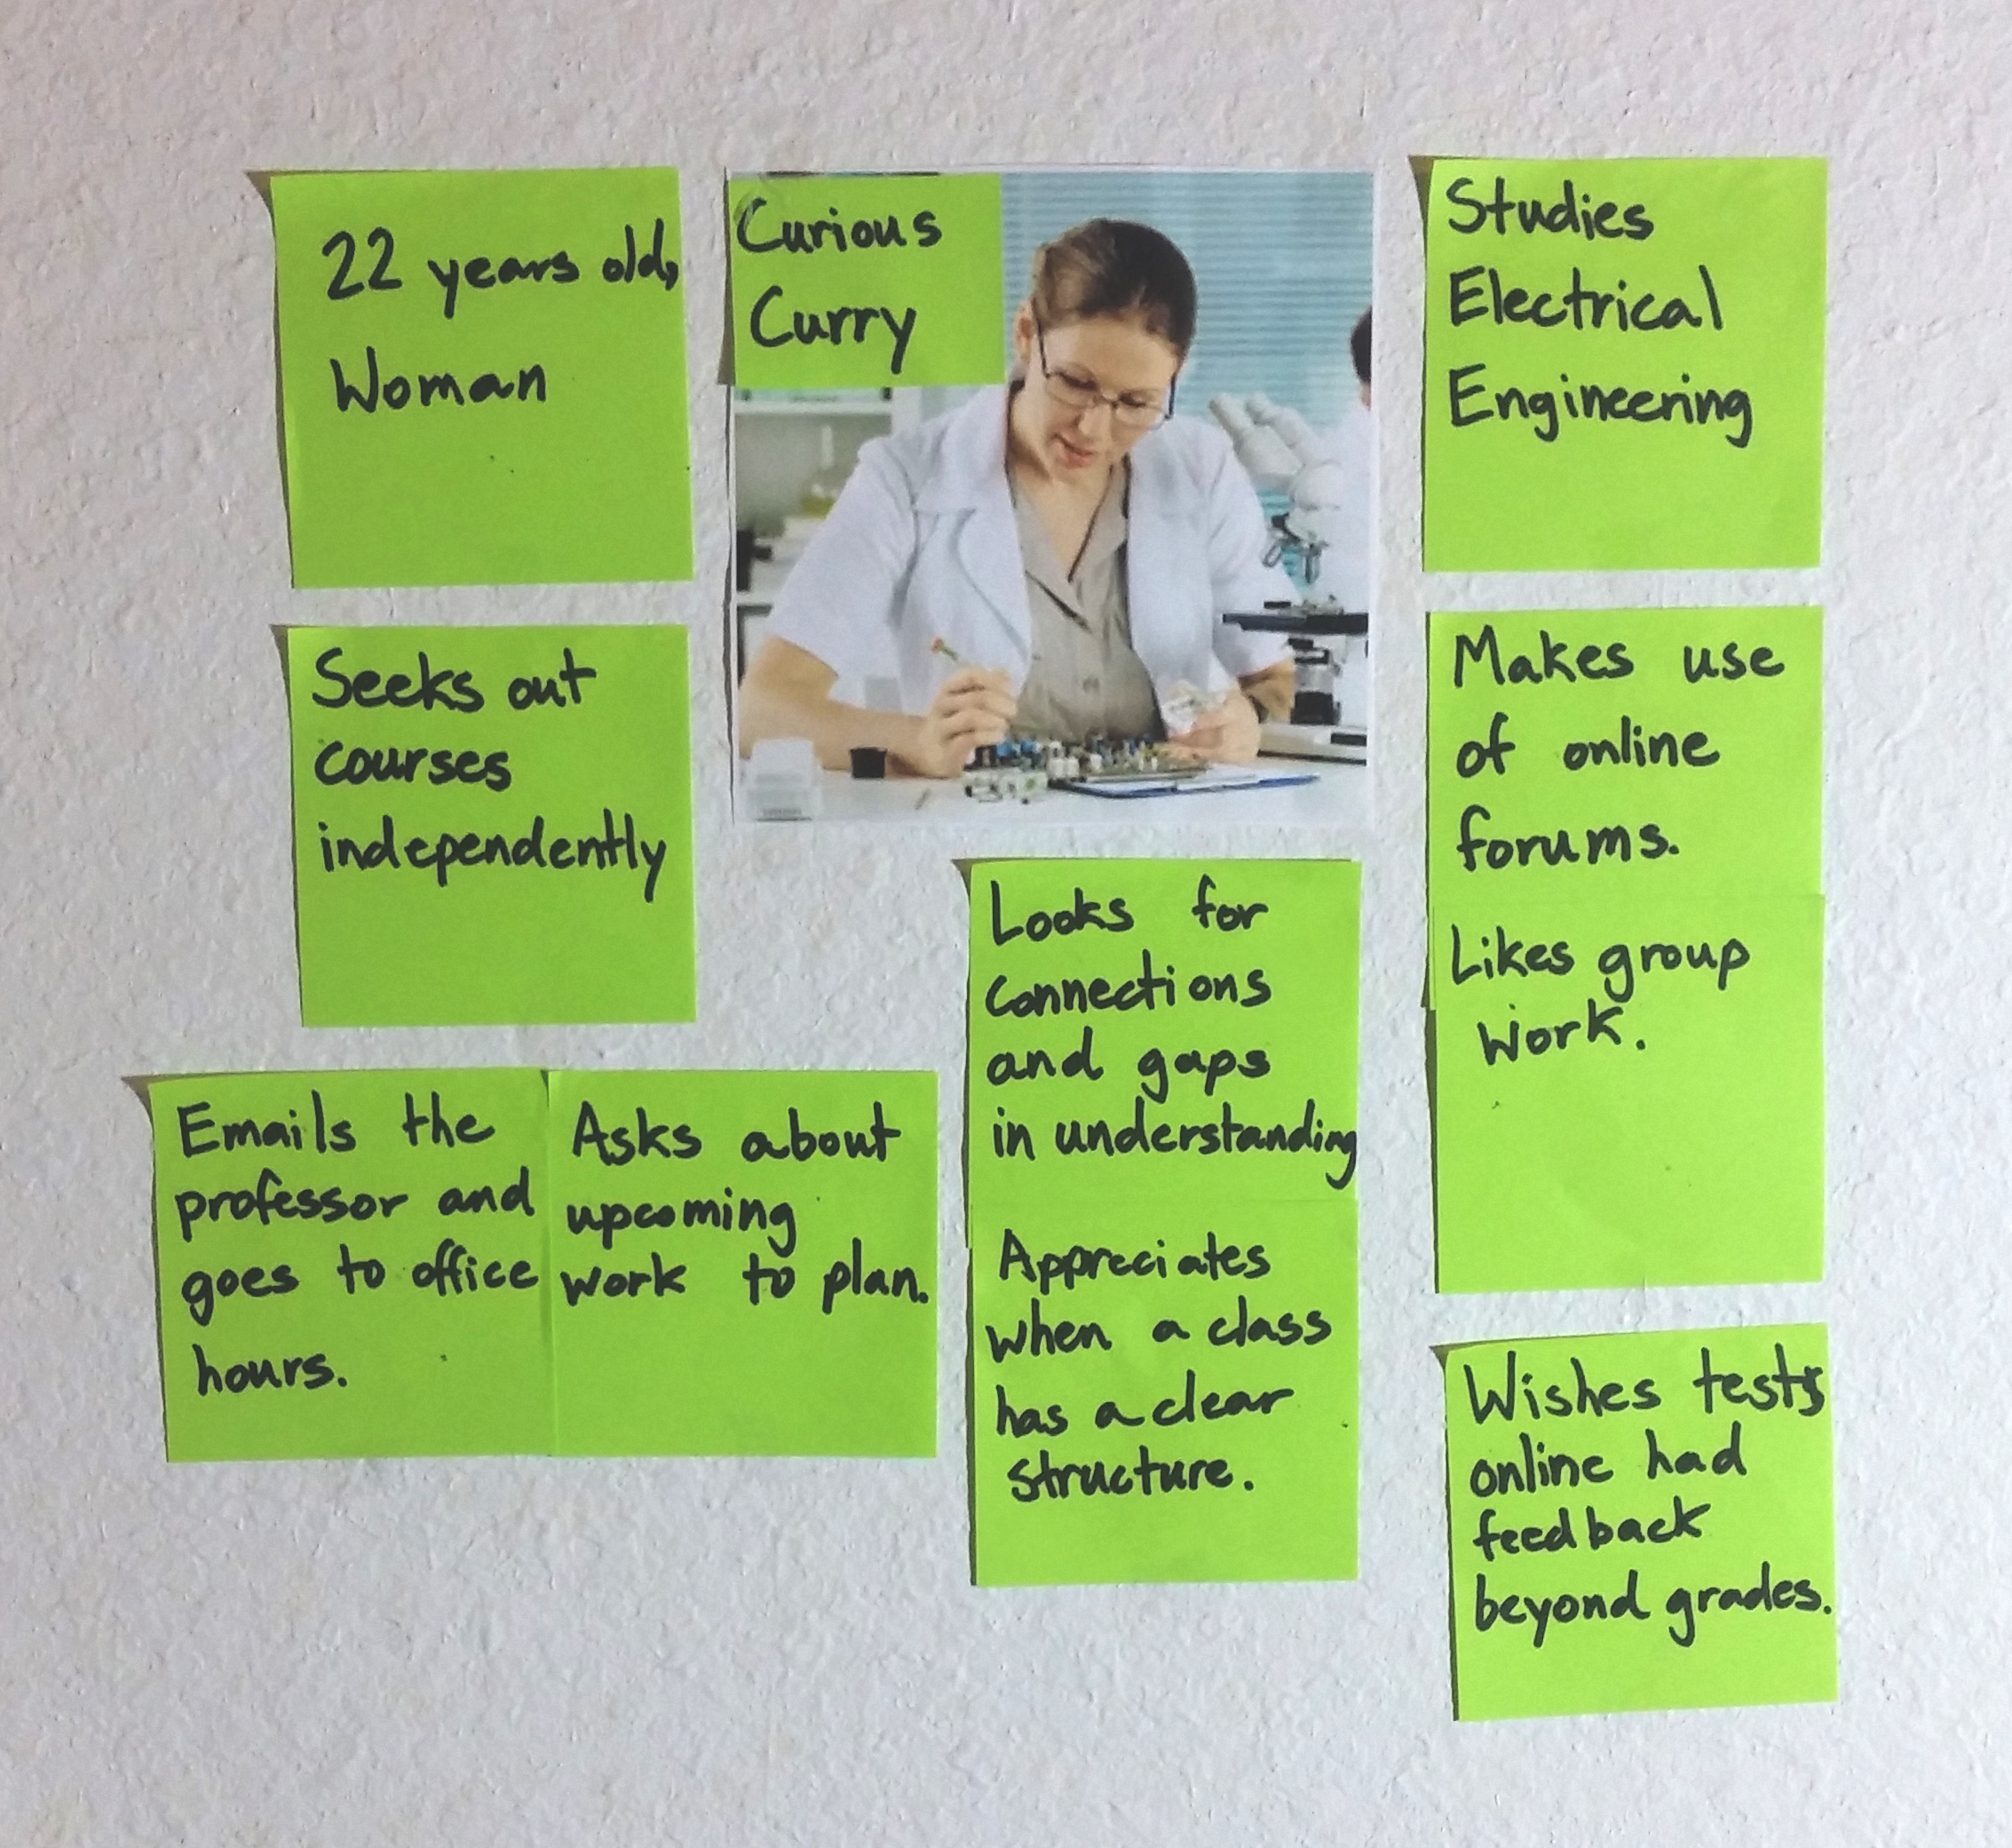 22 years old,
Woman
Curious
Curry
Studies
Electrical
Engineering
Seeks out
courses
independently
Makes use
of online
forums.
Likes group
work.
Looks for
connections
and gaps
in understanding
Appreciates
when a class
has a clear
structure.
Emails the
professor and
goes to office
hours.
Asks about
upcoming
work to plan.
Wishes tests
online had
feedback
beyond grades.